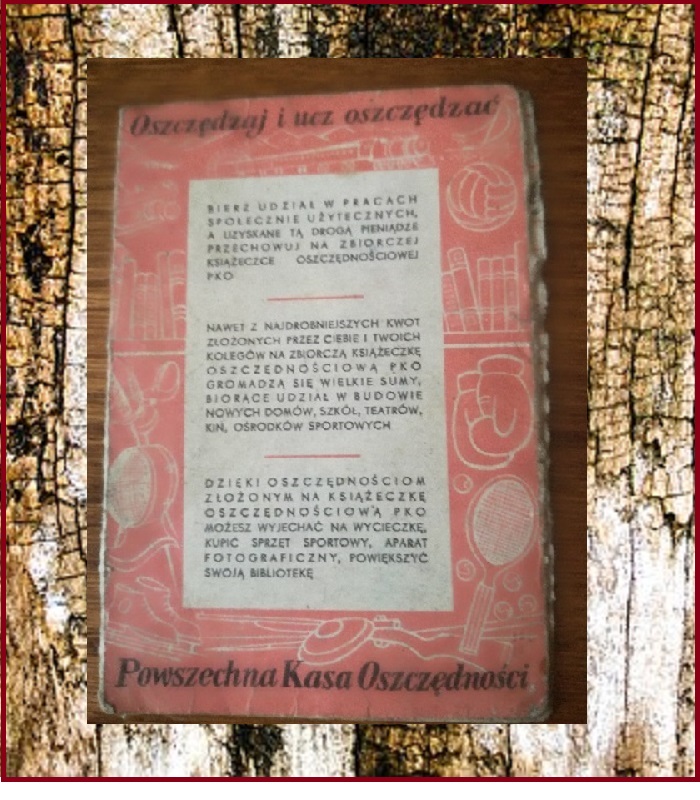 Oszczędzaj i ucz oszczędzać
BIERZ UDZIAŁ W PRACACH
SPOŁECZNIE UŻYTECZNYCH,
A UZYSKANE TĄ DROGĄ PIENIĄDZE
PRZECHOWUJ NA ZBIORCZEJ
KSIĄŻECZCE OSZCZĘDNOŚCIOWEJ
PKO
NAWET Z NAJDROBNIEJSZYCH KWOT
ZŁOŻONYCH PRZEZ CIEBIE I TWOICH
KOLEGÓW NA ZBIORCZĄ KSIĄŻECZKĘ
OSZCZĘDNOŚCIOWĄ PKO
GROMADZĄ SIĘ WIELKIE SUMY,
BIORĄCE UDZIAŁ W BUDOWIE
NOWYCH DOMÓW, SZKÓŁ, TEATRÓW,
KIN, OŚRODKÓW SPORTOWYCH
DZIĘKI OSZCZĘDNOŚCIOM
ZŁOŻONYM NA KSIĄŻECZKĘ
OSZCZĘDNOŚCIOWĄ PKO
MOŻESZ WYJECHAĆ NA WYCIECZKĘ,
KUPIĆ SPRZĘT SPORTOWY, APARAT
FOTOGRAFICZNY, POWIĘKSZYĆ
SWOJĄ BIBLIOTEKĘ
Powszechna Kasa Oszczędności